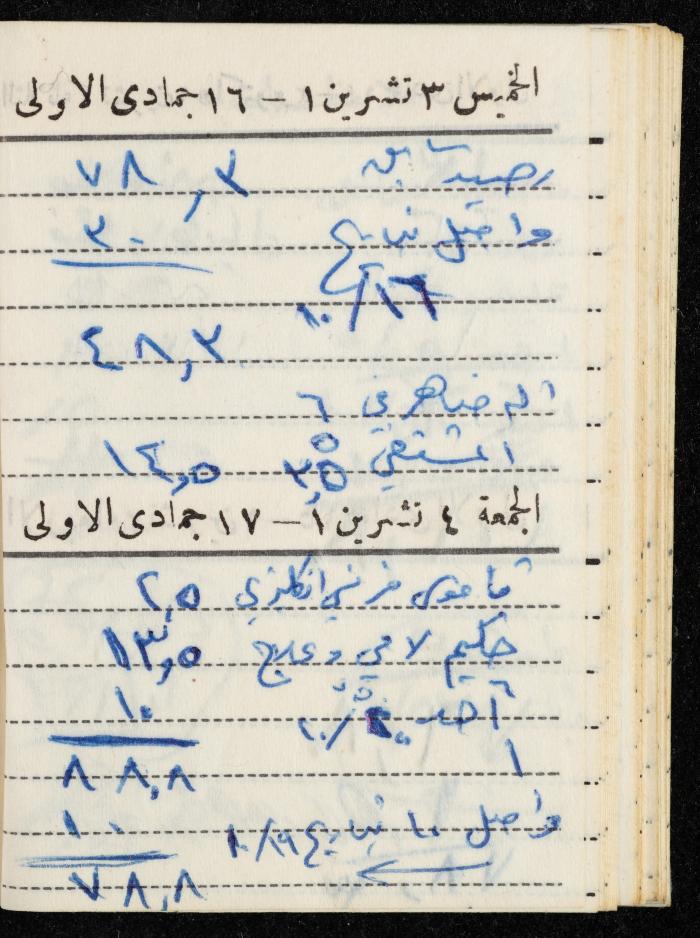 الخميس ٣ تشرين ١ – ١٦ جمادى الاولى
رصيد سابق ٧٨,٢
واصل بتاريخ ٣٠
١٠/١٦
٤٨,٢
٦
٣,٥ ١٤,٥
الجمعة ٤ تشرين ١ – ١٧ جمادى الاولى
قاموس فرنسي انكليزي ٢,٥
حكيم لامي وعلاج ١٣,٥
أحمد ١٠
١
٨٨,٨
واصل ١٠ بتاريخ ١٠/١٩ ١٠
٧٨,٨